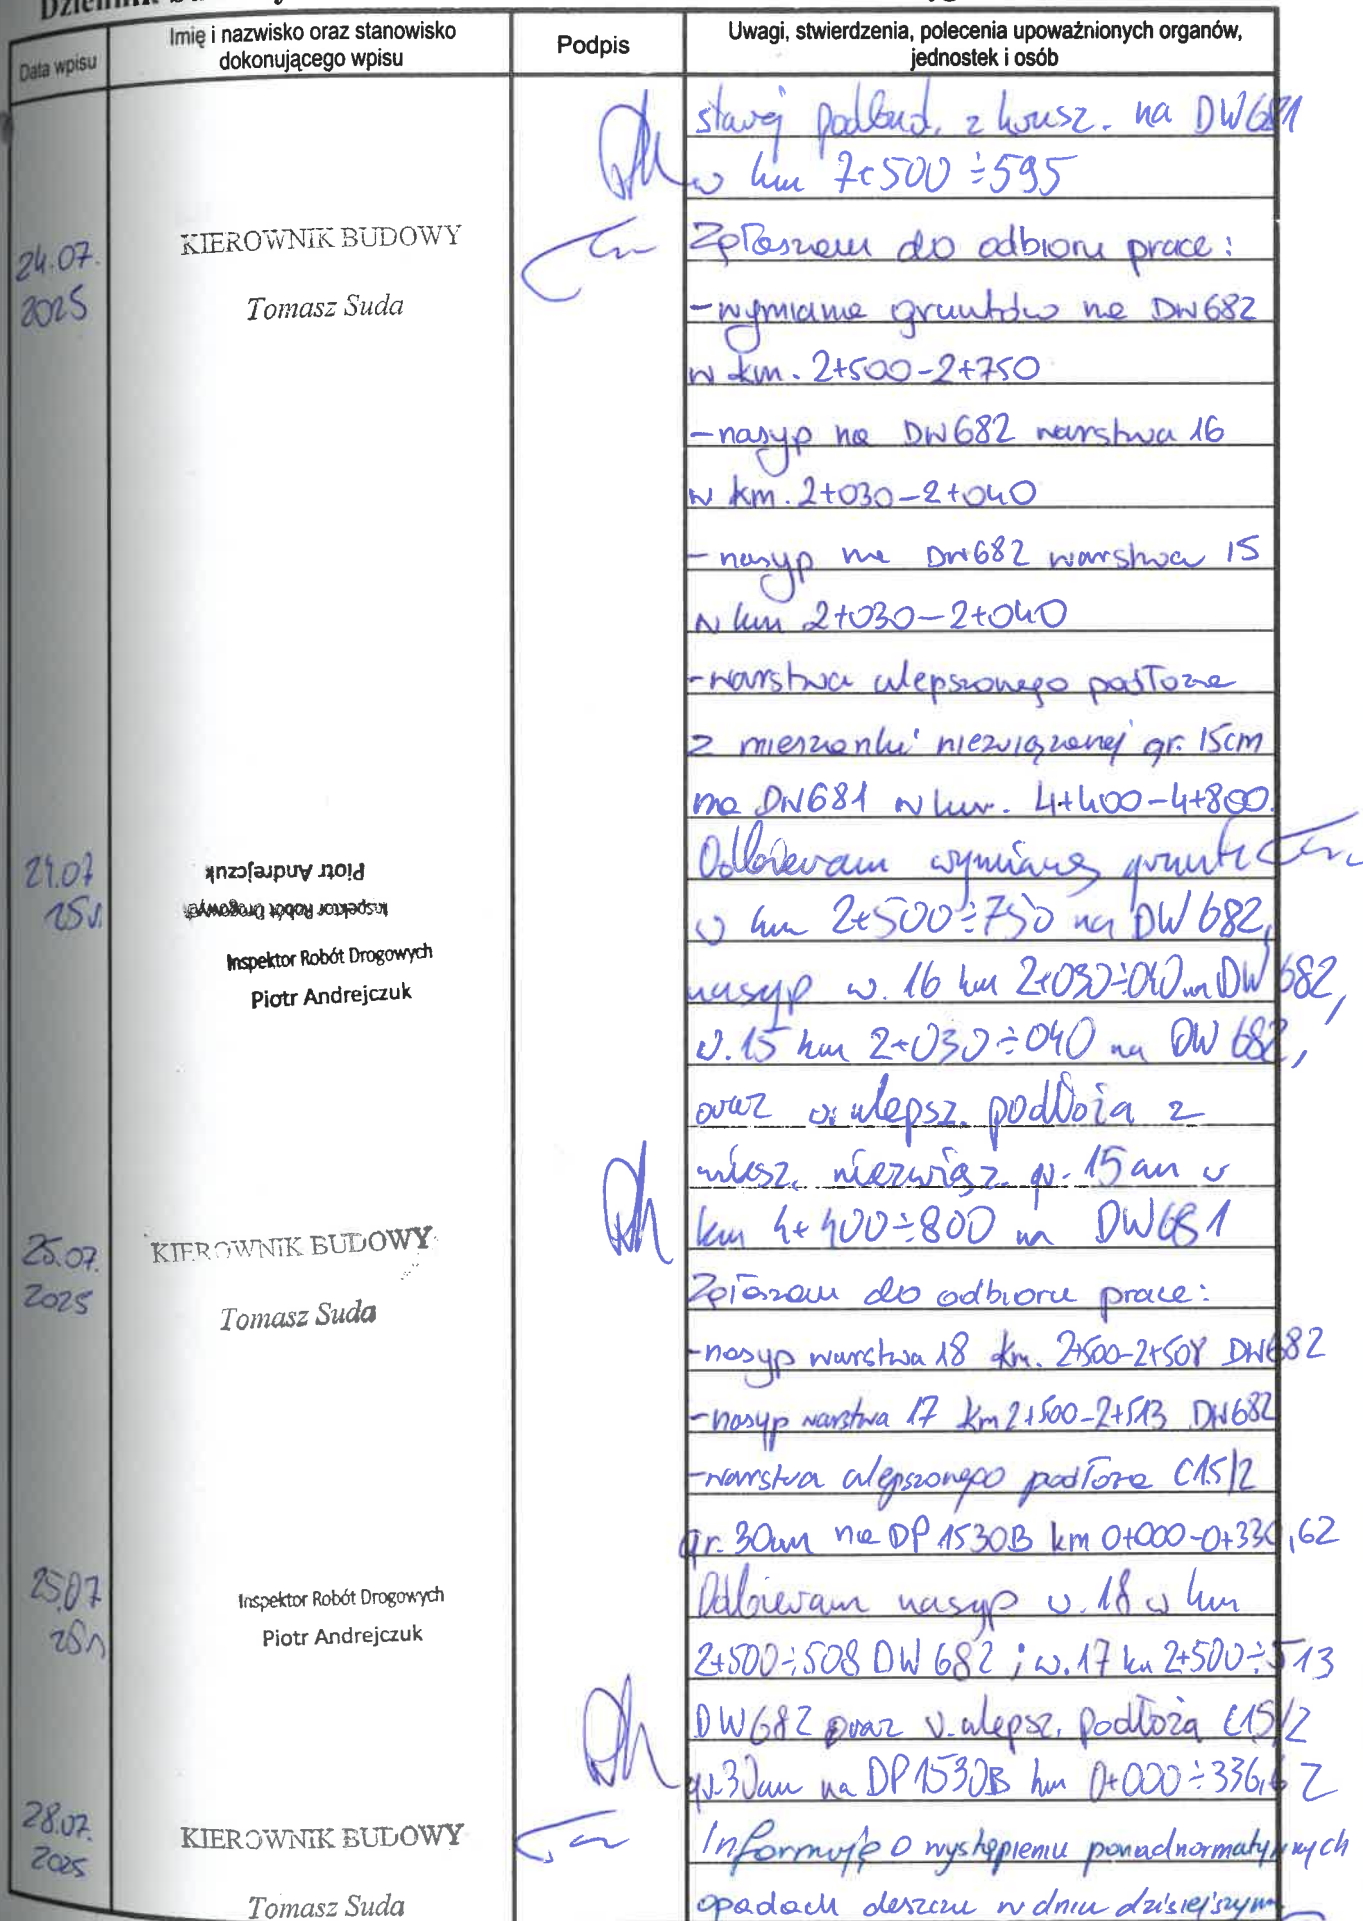 Data wpisu
Imię i nazwisko oraz stanowisko
dokonującego wpisu
Podpis
Uwagi, stwierdzenia, polecenia upoważnionych organów,
jednostek i osób
starej podbud. z krusz. na DW681
w km 7+500÷595
24.07.
2025
KIEROWNIK BUDOWY
Tomasz Suda
Zgłaszam do odbioru prace:
-wymiana gruntów na DW682
w km. 2+500-2+750
-nasyp na DW682 warstwa 16
w km. 2+030-2+040
-nasyp na DW682 warstwa 15
w km 2+030-2+040
-warstwa ulepszonego podłoża
z mieszanki niezwiązanej gr. 15cm
na DW681 w km. 4+400-4+800.
24.07
25r.
Piotr Andrejczuk
Inspektor Robót Drogowych
Inspektor Robót Drogowych
Piotr Andrejczuk
Odbieram wymianę gruntu
w km 2+500÷750 na DW682,
nasyp w. 16 km 2+030÷040 na DW 682,
w. 15 km 2+030÷040 na DW 682,
oraz w. ulepsz. podłoża z
miesz. niezwiąz. gr. 15cm w
km 4+400÷800 na DW681
25.07.
2025
KIEROWNIK BUDOWY
Tomasz Suda
Zgłaszam do odbioru prace:
-nasyp warstwa 18 km. 2+500-2+508 DW682
-nasyp warstwa 17 km 2+500-2+513 DW682
-warstwa ulepszonego podłoża C1.5/2
gr. 30cm na DP 1530B km 0+000-0+330,62
25.07
25r
Inspektor Robót Drogowych
Piotr Andrejczuk
Odbieram nasyp w. 18 w km
2+500÷508 DW 682; w. 17 km 2+500÷513
DW682 oraz w. ulepsz. podłoża C1.5/2
gr. 30cm na DP 1530B km 0+000÷336,62
28.07.
2025
KIEROWNIK BUDOWY
Tomasz Suda
Informuję o wystąpieniu ponadnormatywnych
opadach deszczu w dniu dzisiejszym.